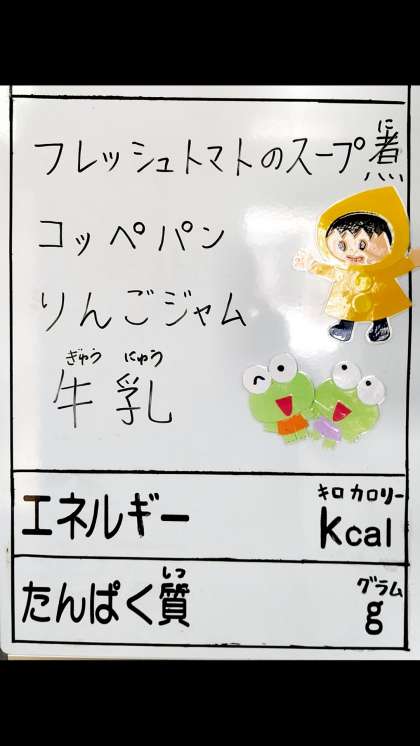 フレッシュトマトのスープ煮
に
コッペパン
りんごジャム
ぎゅう にゅう
牛乳
エネルギー
キロカロリー
kcal
しつ
たんぱく質
グラム
g